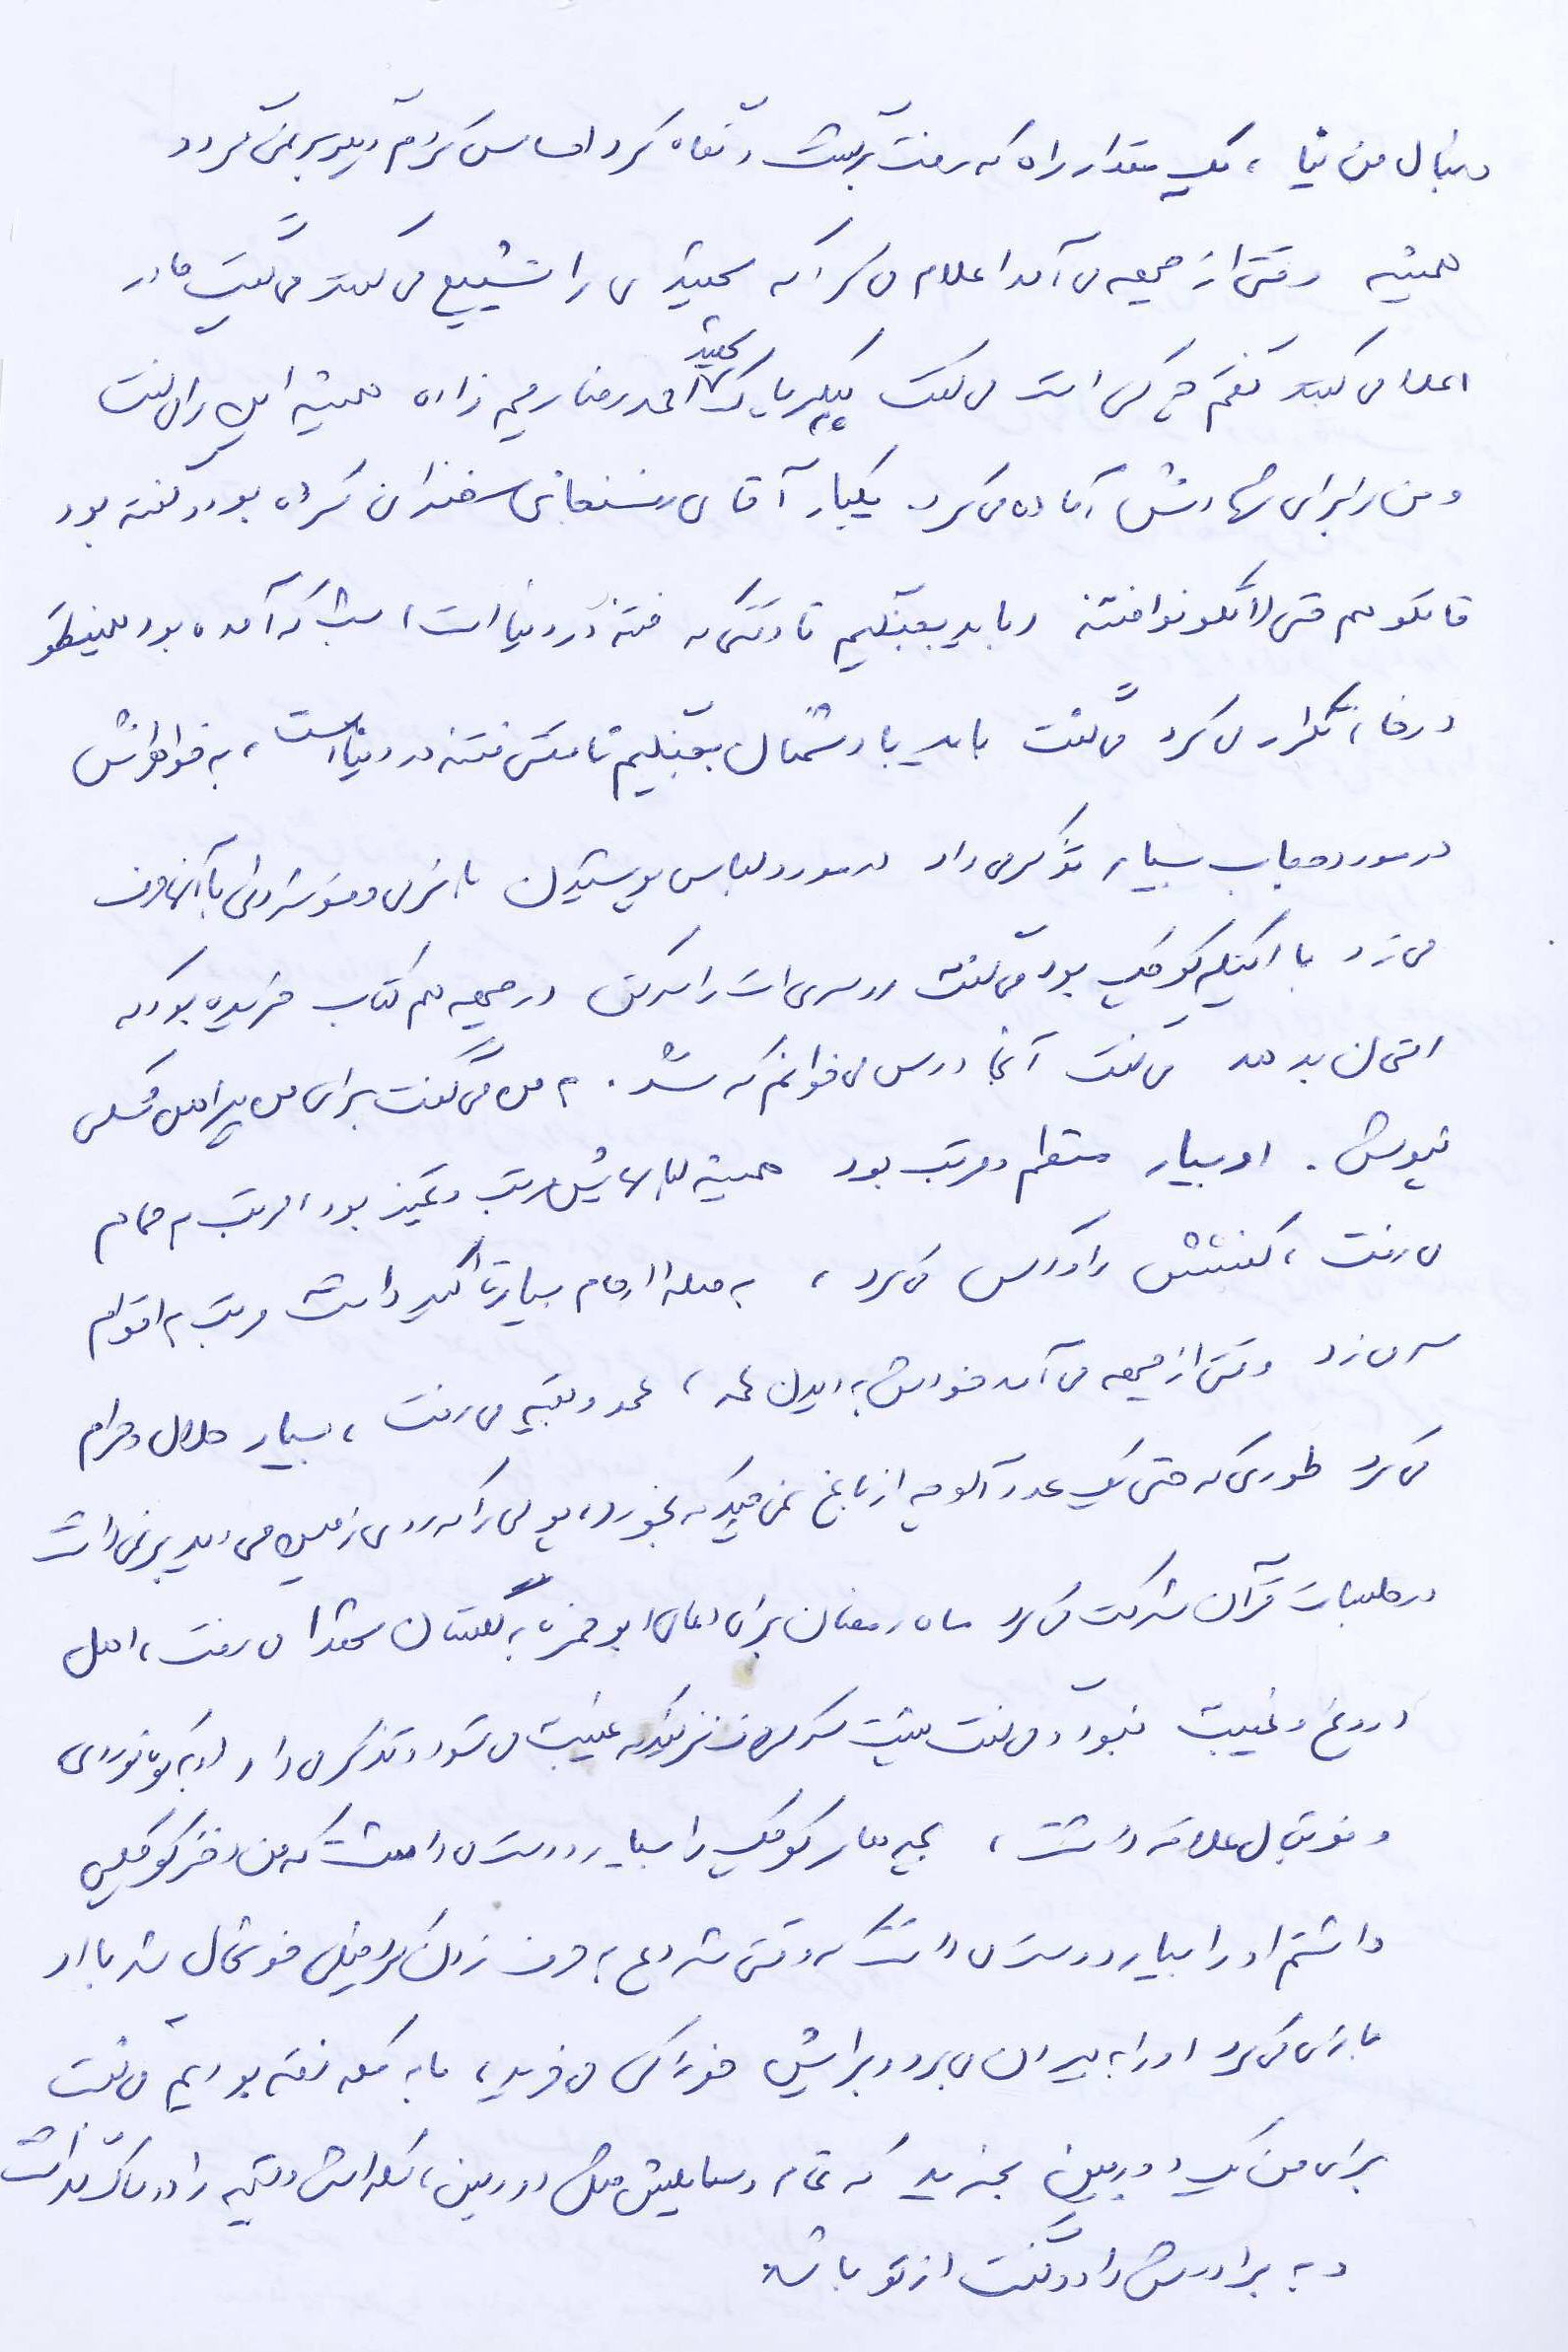 دنبال من نیا ، یک مقدار راه که رفت برگشت و نگاه کرد احساس کردم دیگر برنمی گردد
همیشه وقتی از جبهه می آمد اعلام می کرد که شهیدی را تشییع می کنند می گفت مادر
اعلام می کنند گفتم چه کسی است می گفت پیکر پاک شهید محمدرضا رحیم زاده همیشه این را می گفت
و من را برای شهادتش آماده می کرد. یکبار آقای رفسنجانی سخنرانی کرده بود و گفته بود
قاتلوهم حتی لاتکونوا فتنه و باید بجنگیم تا وقتی که فتنه در دنیا است ، شب که آمده بود همینطور
در خانه تکرار می کرد می گفت باید با دشمنان بجنگیم تا وقتی فتنه در دنیا است ، به خواهرانش
در مورد حجاب بسیار تذکر می داد در مورد لباس پوشیدن با نرمی و خوشروئی با آنها حرف
می زد با اینکه کوچک بود می گفت روسری ات را سر کن در جبهه هم کتاب خریده بود که
امتحان بدهد می گفت آنجا درس می خوانم که شد . به من می گفت برای من پیراهن مشکی
نپوش . او بسیار منظم و مرتب بود همیشه لباسهایش مرتب و تمیز بود مرتب به حمام
می رفت ، کفشش را واکس می کرد ، به صله ارحام بسیار تاکید داشت مرتب به اقوام
سر می زد وقتی از جبهه می آمد خودش به دیدن عمه ، عمو و بقیه می رفت ، بسیار حلال و حرام
می کرد طوری که حتی یک عدد آلوچه از باغ نمی چید که بخورد ، پولی را که روی زمین می دید برنمی داشت
در جلسات قرآن شرکت می کرد ماه رمضان برای دعای ابوحمزه به گلستان شهدا می رفت ، اهل
دروغ و غیبت نبود و می گفت پشت سر مردم حرف نزنید که غیبت می شود و تذکر می داد او به کوهنوردی
و فوتبال علاقه داشت ، بچه های کوچک را بسیار دوست می داشت که من دختر کوچکی
داشتم او را بسیار دوست می داشت که وقتی شروع به حرف زدن کرد خیلی خوشحال شد با او
بازی می کرد او را به بیرون می برد و برایش خوراکی می خرید ، ما به مکه رفته بودیم می گفت
برای من یک دوربین بخرید که تمام وسایلش مثل دوربین ، کفش و بقیه را در ساک گذاشت
و به برادرش داد و گفت از تو باشد